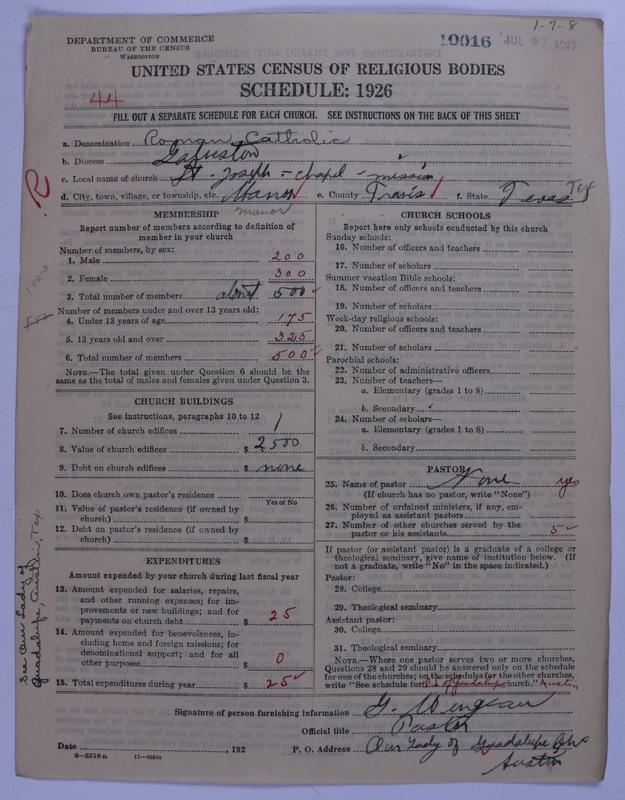 1-7-8
DEPARTMENT OF COMMERCE
BUREAU OF THE CENSUS
WASHINGTON
19916 JUL 1927
UNITED STATES CENSUS OF RELIGIOUS BODIES
SCHEDULE: 1926
44
FILL OUT A SEPARATE SCHEDULE FOR EACH CHURCH. SEE INSTRUCTIONS ON THE BACK OF THIS SHEET
a. Denomination Roman Catholic
b. Diocese Galveston
c. Local name of church St. Joseph = chapel - mission
d. City, town, village, or township, etc. Manor e. County Travis f. State Texas Tex
manor
R
MEMBERSHIP
Report number of members according to definition of
member in your church
Number of members, by sex:
1. Male 200
2. Female 300
3. Total number of members about 500
Number of members under and over 13 years old:
4. Under 13 years of age 175
5. 13 years old and over 325
6. Total number of members 500
NOTE.—The total given under Question 6 should be the
same as the total of males and females given under Question 3.
CHURCH BUILDINGS
See instructions, paragraphs 10 to 12
7. Number of church edifices 1
8. Value of church edifices $ 2500
9. Debt on church edifices $ none
10. Does church own pastor's residence
Yes or No
11. Value of pastor's residence (if owned by
church) $
12. Debt on pastor's residence (if owned by
church) $
EXPENDITURES
Amount expended by your church during last fiscal year
13. Amount expended for salaries, repairs,
and other running expenses; for im-
provements or new buildings; and for
payments on church debt $ 25
14. Amount expended for benevolences, in-
cluding home and foreign missions; for
denominational support; and for all
other purposes $ 0
15. Total expenditures during year $ 25
See Our Lady of
Guadalupe, Austin, Tex
CHURCH SCHOOLS
Report here only schools conducted by this church
Sunday schools:
16. Number of officers and teachers
17. Number of scholars
Summer vacation Bible schools:
18. Number of officers and teachers
19. Number of scholars
Week-day religious schools:
20. Number of officers and teachers
21. Number of scholars
Parochial schools:
22. Number of administrative officers
23. Number of teachers—
a. Elementary (grades 1 to 8)
b. Secondary
24. Number of scholars—
a. Elementary (grades 1 to 8)
b. Secondary
PASTOR
25. Name of pastor None yes
(If church has no pastor, write "None")
26. Number of ordained ministers, if any, em-
ployed as assistant pastors
27. Number of other churches served by the
pastor or his assistants 5
If pastor (or assistant pastor) is a graduate of a college or
theological seminary, give name of institution below. (If
not a graduate, write "No" in the space indicated.)
Pastor:
28. College
29. Theological seminary
Assistant pastor:
30. College
31. Theological seminary
NOTE.—Where one pastor serves two or more churches,
Questions 28 and 29 should be answered only on the schedule
for one of the churches; on the schedules for the other churches,
write "See schedule for O. L. of Guadalupe church." Austin
Signature of person furnishing information
Official title Pastor
Date , 192 P. O. Address Our Lady of Guadalupe
Austin
8—5518a 11—9051a